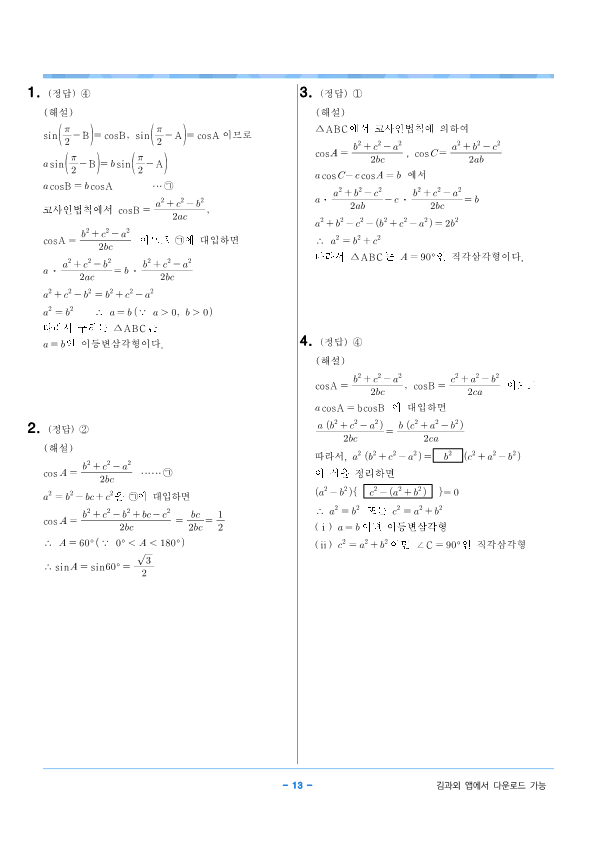 1. (정답) ④
(해설)
sin(π/2−B)= cosB, sin(π/2−A)= cosA 이므로
a sin(π/2−B)= b sin(π/2−A)
a cosB = b cosA ⋯ ㉠
코사인법칙에서 cosB = (a²+c²−b²)/2ac ,
cosA = (b²+c²−a²)/2bc 이므로 ㉠에 대입하면
a · (a²+c²−b²)/2ac = b · (b²+c²−a²)/2bc
a²+c²−b² = b²+c²−a²
a² = b² ∴ a = b (∵ a>0, b>0)
따라서 구하는 △ABC는
a = b인 이등변삼각형이다.
2. (정답) ②
(해설)
cos A = (b²+c²−a²)/2bc ⋯⋯㉠
a² = b²−bc+c²을 ㉠에 대입하면
cos A = (b²+c²−b²+bc−c²)/2bc = bc/2bc = 1/2
∴ A = 60° (∵ 0° < A < 180°)
∴ sin A = sin60° = √3/2
3. (정답) ①
(해설)
△ABC에서 코사인법칙에 의하여
cosA = (b²+c²−a²)/2bc , cosC = (a²+b²−c²)/2ab
a cosC − c cosA = b 에서
a · (a²+b²−c²)/2ab − c · (b²+c²−a²)/2bc = b
a²+b²−c²−(b²+c²−a²) = 2b²
∴ a² = b²+c²
따라서 △ABC는 A = 90°인 직각삼각형이다.
4. (정답) ④
(해설)
cosA = (b²+c²−a²)/2bc , cosB = (c²+a²−b²)/2ca 이므로
a cosA = bcosB 에 대입하면
a (b²+c²−a²)/2bc = b (c²+a²−b²)/2ca
따라서, a² (b²+c²−a²) = b² (c²+a²−b²)
이 식을 정리하면
(a²−b²){ c²−(a²+b²) } = 0
∴ a² = b² 또는 c² = a²+b²
(ⅰ) a = b이면 이등변삼각형
(ⅱ) c² = a²+b²이면 ∠C = 90°인 직각삼각형
- 13 -
김과외 앱에서 다운로드 가능